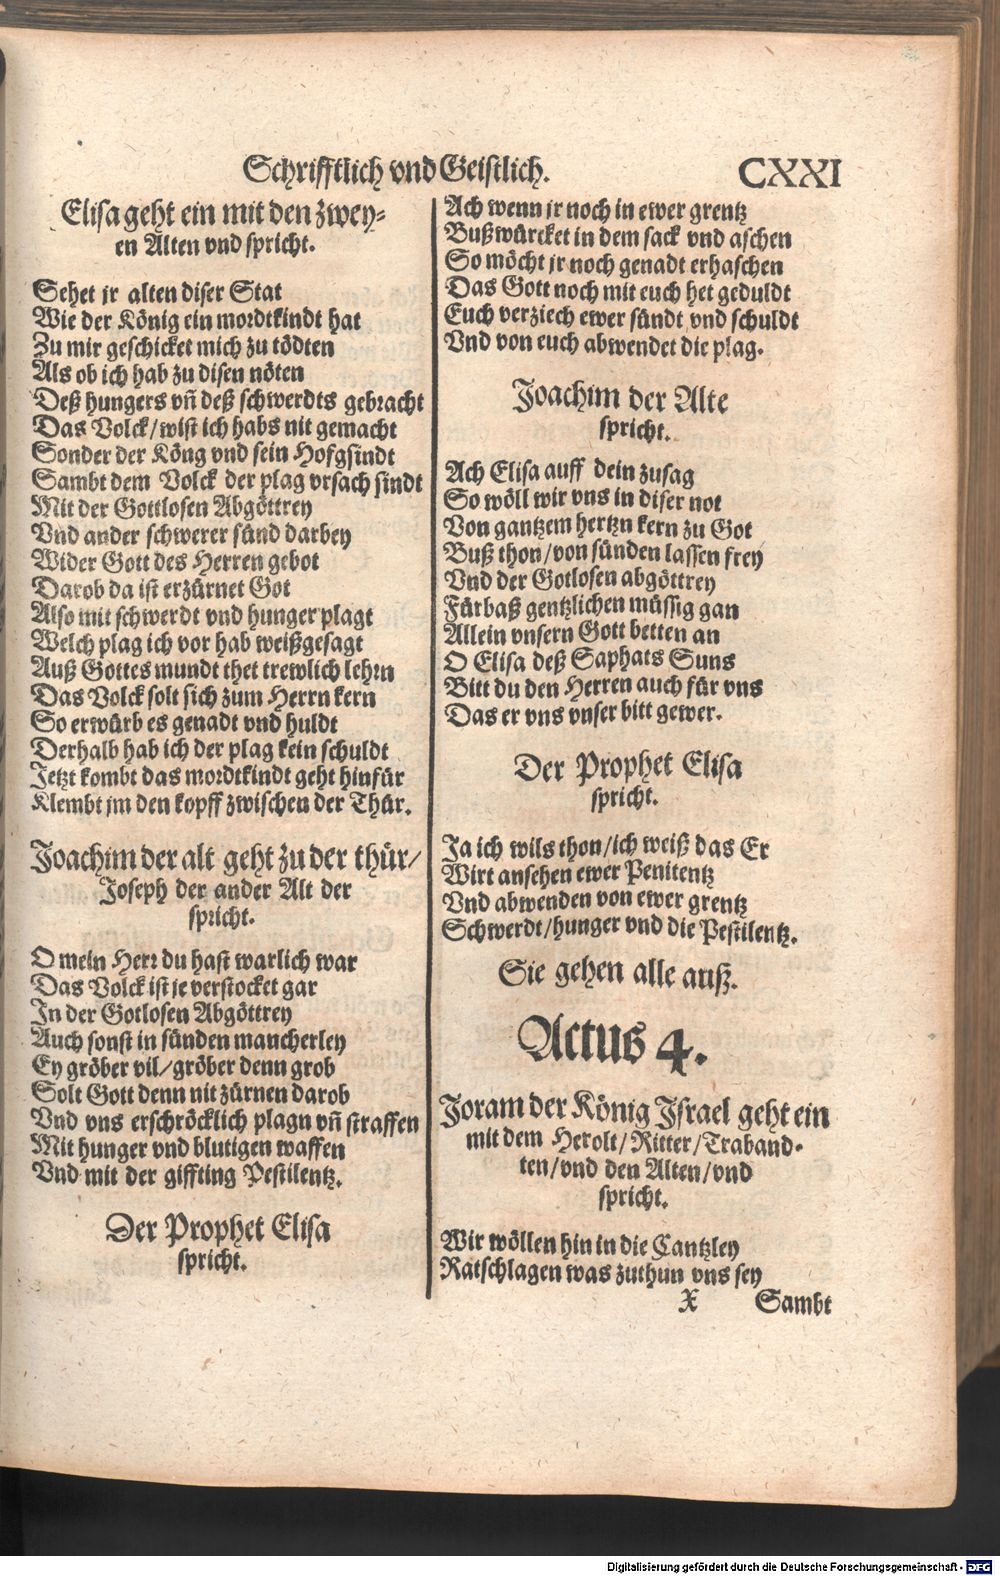 Schrifftlich vnd Geistlich. CXXI
Elisa geht ein mit den zwey-
en Alten vnd spricht.
Sehet jr alten diser Stat
Wie der König ein mordtkindt hat
Zu mir geschicket mich zu tödten
Als ob ich hab zu disen nöten
Deß hungers vñ deß schwerdts gebracht
Das Volck/wist ich habs nit gemacht
Sonder der Köng vnd sein Hofgsindt
Sambt dem Volck der plag vrsach sindt
Mit der Gottlosen Abgöttrey
Vnd ander schwerer sünd darbey
Wider Gott des Herren gebot
Darob da ist erzürnet Got
Also mit schwerdt vnd hunger plagt
Welch plag ich vor hab weißgesagt
Auß Gottes mundt thet trewlich lehrn
Das Volck solt sich zum Herrn kern
So erwürb es genadt vnd huldt
Derhalb hab ich der plag kein schuldt
Jetzt kombt das mordtkindt geht hinfür
Klembt jm den kopff zwischen der Thür.
Joachim der alt geht zu der thür/
Joseph der ander Alt der
spricht.
O mein Herr du hast warlich war
Das Volck ist je verstocket gar
In der Gotlosen Abgöttrey
Auch sonst in sünden mancherley
Ey gröber vil/gröber denn grob
Solt Gott denn nit zürnen darob
Vnd vns erschröcklich plagn vñ straffen
Mit hunger vnd blutigen waffen
Vnd mit der giffting Pestilentz.
Der Prophet Elisa
spricht.
Ach wenn jr noch in ewer grentz
Buß würcket in dem sack vnd aschen
So möcht jr noch genadt erhaschen
Das Gott noch mit euch het geduldt
Euch verziech ewer sündt vnd schuldt
Vnd von euch abwendet die plag.
Joachim der Alte
spricht.
Ach Elisa auff dein zusag
So wöll wir vns in diser not
Von gantzem hertzn kern zu Got
Buß thon/von sünden lassen frey
Vnd der Gotlosen abgöttrey
Fürbaß gentzlichen müssig gan
Allein vnsern Gott betten an
O Elisa deß Saphats Suns
Bitt du den Herren auch für vns
Das er vns vnser bitt gewer.
Der Prophet Elisa
spricht.
Ja ich wils thon/ich weiß das Er
Wirt ansehen ewer Penitentz
Vnd abwenden von ewer grentz
Schwerdt/hunger vnd die Pestilentz.
Sie gehen alle auß.
Actus 4.
Joram der König Israel geht ein
mit dem Herolt/Ritter/Traband-
ten/vnd den Alten/vnd
spricht.
Wir wöllen hin in die Cantzley
Ratschlagen was zuthun vns sey
X Sambt
Digitalisierung gefördert durch die Deutsche Forschungsgemeinschaft - DFG